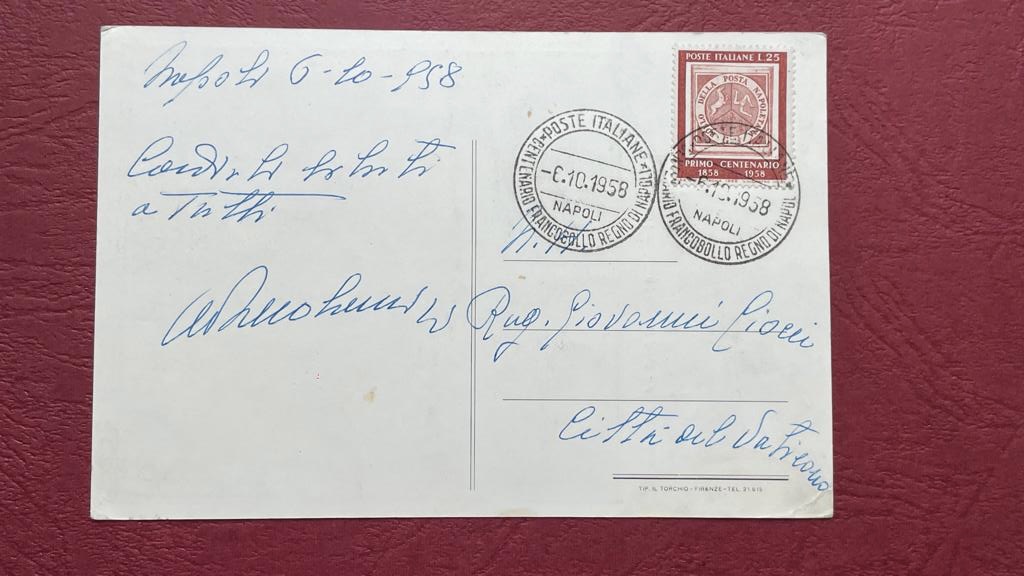 Napoli 6-10-958
Cordiali saluti
a Tutti
POSTE ITALIANE L.25
BOLLO DELLA POSTA NAPOLETANA
PRIMO CENTENARIO
1858 1958
POSTE ITALIANE
-6.10.1958
NAPOLI
CENTENARIO FRANCOBOLLO REGNO DI NAPOLI
-6.10.1958
NAPOLI
CENTENARIO FRANCOBOLLO REGNO DI NAPOLI
Rag. Giovanni
Città del Vaticano
TIP. IL TORCHIO - FIRENZE - TEL. 21.615